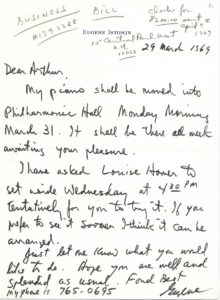 BUSINESS BILL
#1292248
check for
$200.00 sent
April 9
1969
EUGENE ISTOMIN
15 Central Park West
N.Y.
10023
29 March 1969
Dear Arthur,
My piano shall be moved into
Philharmonic Hall Monday Morning
March 31. It shall be there all week
awaiting your pleasure.
I have asked Louise Homer to
set aside Wednesday at 4:30 PM
tentatively for you to try it. If you
prefer to see it sooner I think it can be
arranged.
Just let me know what you would
like to do. Hope you are well and
splendid as usual. Fond Best
My phone is 765-0695 Eugene